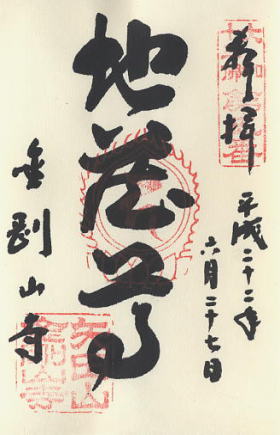 奉拝
平成二十二年
六月二十七日
地蔵尊
金剛山寺